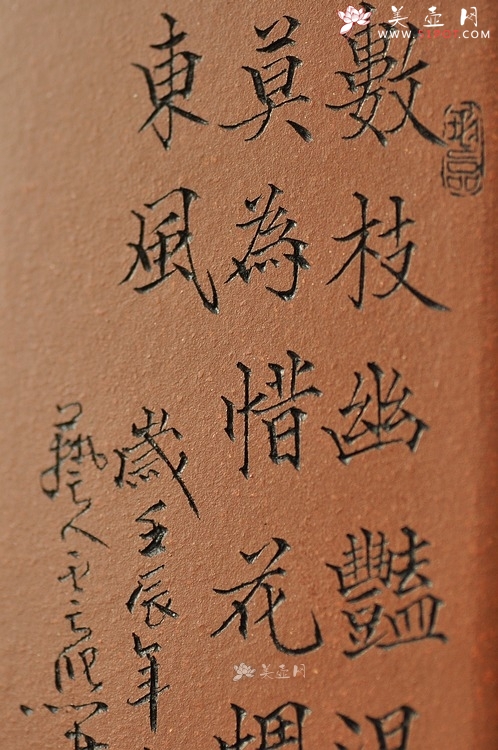 數枝幽豔濕
莫為惜花惆
東風
歲壬辰年
藝人
美壶网
WWW.
美壶网